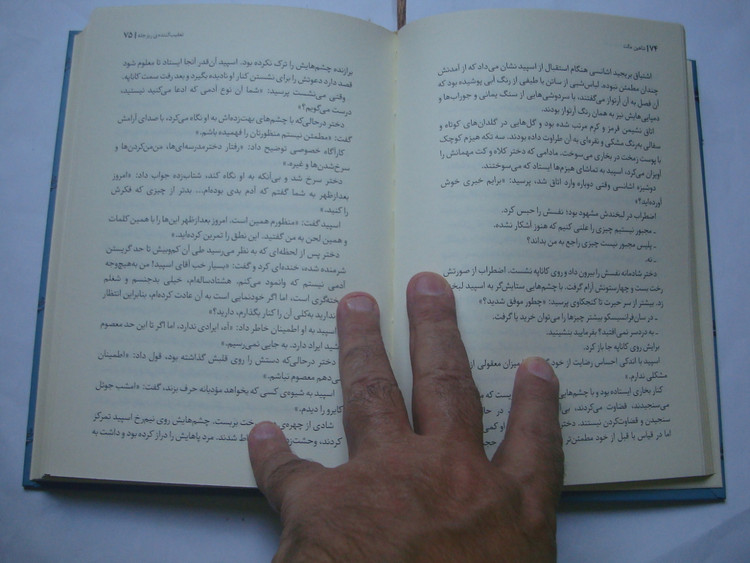 ۷۴ | شاهین مالت
اشتیاق بریجید اشانسی هنگام استقبال از اسپید نشان می‌داد که از آمدنش
چندان مطمئن نبوده. لباس‌شبی از ساتن با طیفی از رنگ آبی پوشیده بود که
آن فصل به آن آرتواز می‌گفتند، با سردوشی‌هایی از سنگ یمانی و جوراب‌ها و
دمپایی‌هایش نیز به همان رنگ آرتواز بودند.
اتاق نشیمن قرمز و کرم مرتب شده بود و گل‌هایی در گلدان‌های کوتاه و
سفالی به‌رنگ مشکی و نقره‌ای به آن طراوت داده بودند. سه تکه هیزم کوچک
با پوست زمخت در بخاری می‌سوخت. مادامی که دختر کلاه و کت مهمانش را
آویزان می‌کرد، اسپید به تماشای هیزم‌ها ایستاد که می‌سوختند.
دوشیزه اشانسی وقتی دوباره وارد اتاق شد، پرسید: «برایم خبری خوش
آورده‌اید؟»
اضطراب در لبخندش مشهود بود؛ نفسش را حبس کرد.
ـ مجبور نیستیم چیزی را علنی کنیم که هنوز آشکار نشده.
ـ پلیس مجبور نیست چیزی راجع به من بداند؟
ـ نه.
دختر شادمانه نفسش را بیرون داد و روی کاناپه نشست. اضطراب از صورتش
رخت بست و چهارستونش آرام گرفت. با چشم‌هایی ستایش‌گر به اسپید لبخند
زد. بیشتر از سر حیرت تا کنجکاوی پرسید: «چطور موفق شدید؟»
ـ در سان‌فرانسیسکو بیشتر چیزها را می‌توان خرید یا گرفت.
ـ به دردسر نمی‌افتید؟ بفرمایید بنشینید.
برایش روی کاناپه جا باز کرد.
اسپید با اندکی احساس رضایت از خود گفت: میزان معقولی از
مشکلی ندارم.»
کنار بخاری ایستاده بود و با چشم‌هایی ست که
می‌سنجیدند، قضاوت می‌کردند، بی در حا
سنجیدن و قضاوت‌کردن نیستند. دختر او کمی
اما در قیاس با قبل از خود مطمئن‌تر حجب
۷۵
برازنده چشم‌هایش را ترک نکرده بود. اسپید آن‌قدر آنجا ایستاد تا معلوم شود
قصد دارد دعوتش را برای نشستن کنار او نادیده بگیرد و بعد رفت سمت کاناپه.
وقتی می‌نشست پرسید: «شما آن نوع آدمی که ادعا می‌کنید نیستید،
درست می‌گویم؟»
دختر درحالی‌که با چشم‌های بهت‌زده‌اش به او نگاه می‌کرد، با صدای آرامش
گفت: «مطمئن نیستم منظورتان را فهمیده باشم.»
کارآگاه خصوصی توضیح داد: «رفتار دخترمدرسه‌ای‌ها، من‌من‌کردن‌ها و
سرخ‌شدن‌ها و غیره.»
دختر سرخ شد و بی‌آنکه به او نگاه کند، شتاب‌زده جواب داد: «امروز
بعدازظهر به شما گفتم که آدم بدی بوده‌ام... بدتر از چیزی که فکرش
را کنید.»
اسپید گفت: «منظورم همین است. امروز بعدازظهر این‌ها را با همین کلمات
و همین لحن به من گفتید. این نطق را تمرین کرده‌اید.»
دختر پس از لحظه‌ای که به نظر می‌رسید طی آن کم‌وبیش تا حد گریستن
شرمنده شده، خنده‌ای کرد و گفت: «بسیار خب آقای اسپید! من به‌هیچ‌وجه
آدمی نیستم که وانمود می‌کنم. هشتادساله‌ام، خیلی بدجنسم و شغلم
ریخته‌گری است، اما اگر خودنمایی است به آن عادت کرده‌ام، بنابراین انتظار
ندارید به‌کلی آن را کنار بگذارم، دارید؟»
اسپید به او اطمینان خاطر داد: «آه، ایرادی ندارد، اما اگر تا این حد معصوم
باشید ایراد دارد. به جایی نمی‌رسیم.»
دختر درحالی‌که دستش را روی قلبش گذاشته بود، قول داد: «اطمینان
می‌دهم معصوم نباشم.»
اسپید به شیوه‌ی کسی که بخواهد مؤدبانه حرف بزند، گفت: «امشب جوئل
کایرو را دیدم.»
شادی از چهره‌ی رخت بربست. چشم‌هایش روی نیم‌رخ اسپید تمرکز
کردند، وحشت‌زده شدند. مرد پاهایش را دراز کرده بود و داشت به